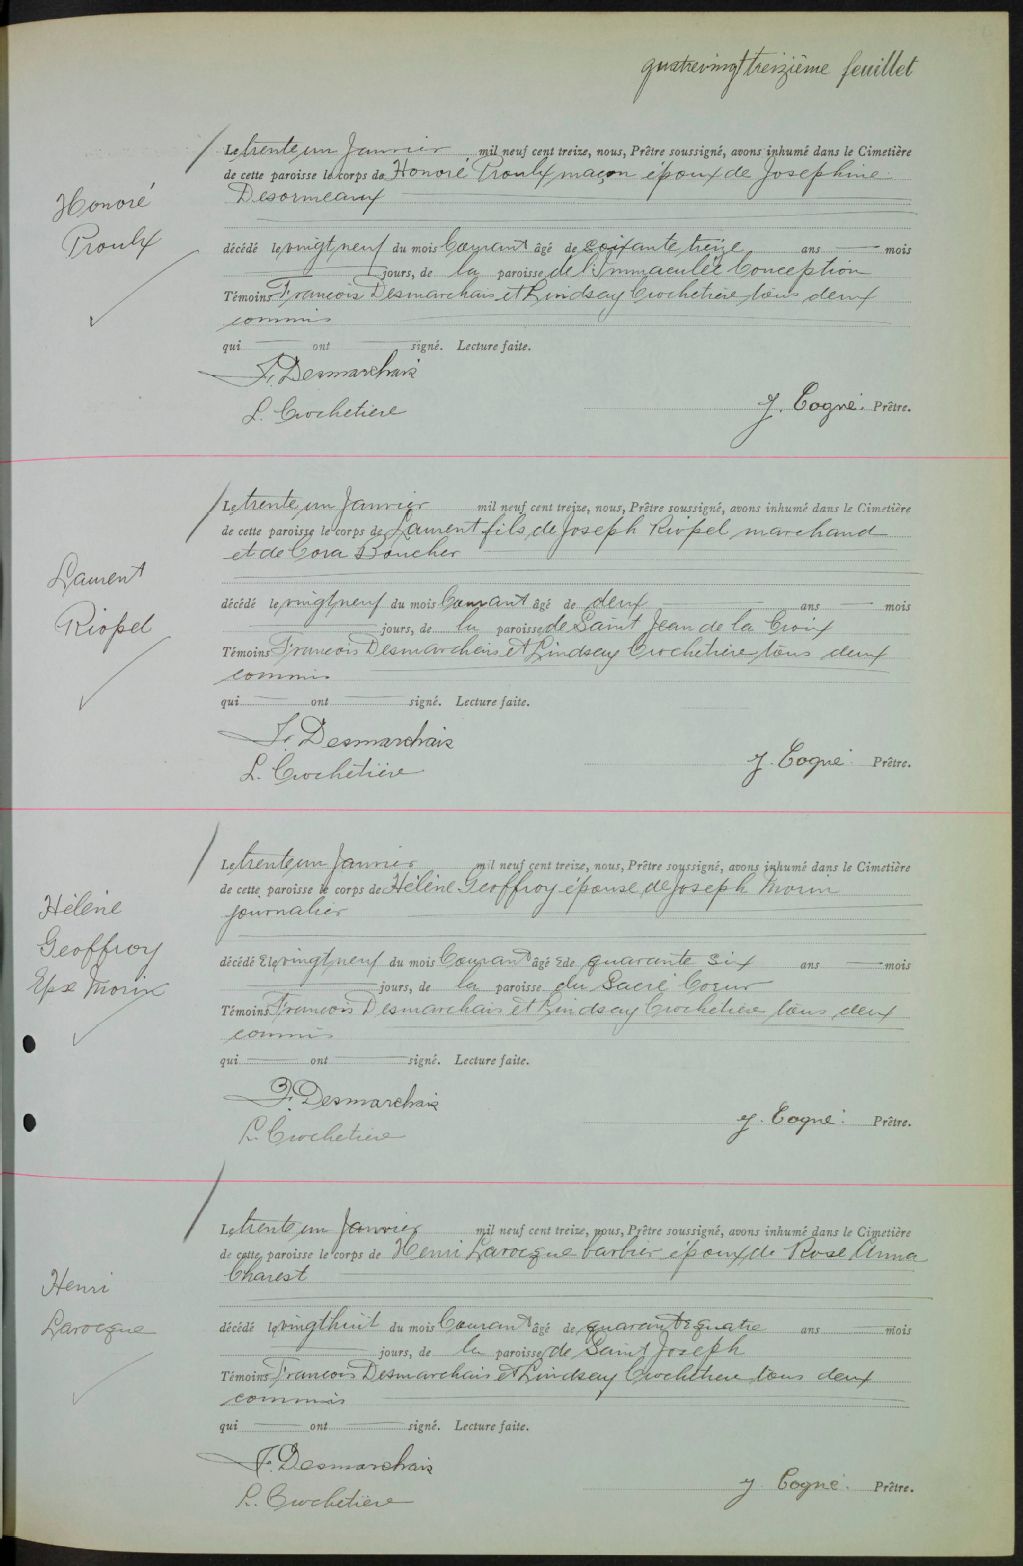 quatrevingt treizième feuillet
Honoré
Proulx
Le trente un Janvier mil neuf cent treize, nous, Prêtre soussigné, avons inhumé dans le Cimetière
de cette paroisse le corps de Honoré Proulx maçon époux de Josephine
Desormeaux
décédé le vingt neuf du mois Courant âgé de soixante treize ans mois
jours, de la paroisse de l'Immaculée Conception
Témoins Francois Desmarchais et Lindsay Crochetière tous deux
commis
qui ont signé. Lecture faite.
F. Desmarchais
L. Crochetiere
J. Cogné. Prêtre.
Laurent
Riopel
Le trente un Janvier mil neuf cent treize, nous, Prêtre soussigné, avons inhumé dans le Cimetière
de cette paroisse le corps de Laurent fils de Joseph Riopel marchand
et de Cora Boucher
décédé le vingt neuf du mois Courant âgé de deux ans mois
jours, de la paroisse de Saint Jean de la Croix
Témoins Francois Desmarchais et Lindsay Crochetière tous deux
commis
qui ont signé. Lecture faite.
F. Desmarchais
L. Crochetière
J. Cogné. Prêtre.
Hélène
Geoffroy
Epse Morin
Le trente un Janvier mil neuf cent treize, nous, Prêtre soussigné, avons inhumé dans le Cimetière
de cette paroisse le corps de Hélène Geoffroy épouse de Joseph Morin
journalier
décédé e le vingt neuf du mois Courant âgé e de quarante six ans mois
jours, de la paroisse du Sacré Coeur
Témoins Francois Desmarchais et Lindsay Crochetière tous deux
commis
qui ont signé. Lecture faite.
F. Desmarchais
L. Crochetiere
J. Cogné. Prêtre.
Henri
Larocque
Le trente un Janvier mil neuf cent treize, nous, Prêtre soussigné, avons inhumé dans le Cimetière
de cette paroisse le corps de Henri Larocque barbier époux de Rose Anna
Charest
décédé le vingt huit du mois Courant âgé de quarante quatre ans mois
jours, de la paroisse de Saint Joseph
Témoins Francois Desmarchais et Lindsay Crochetiere tous deux
commis
qui ont signé. Lecture faite.
F. Desmarchais
L. Crochetière
J. Cogné. Prêtre.